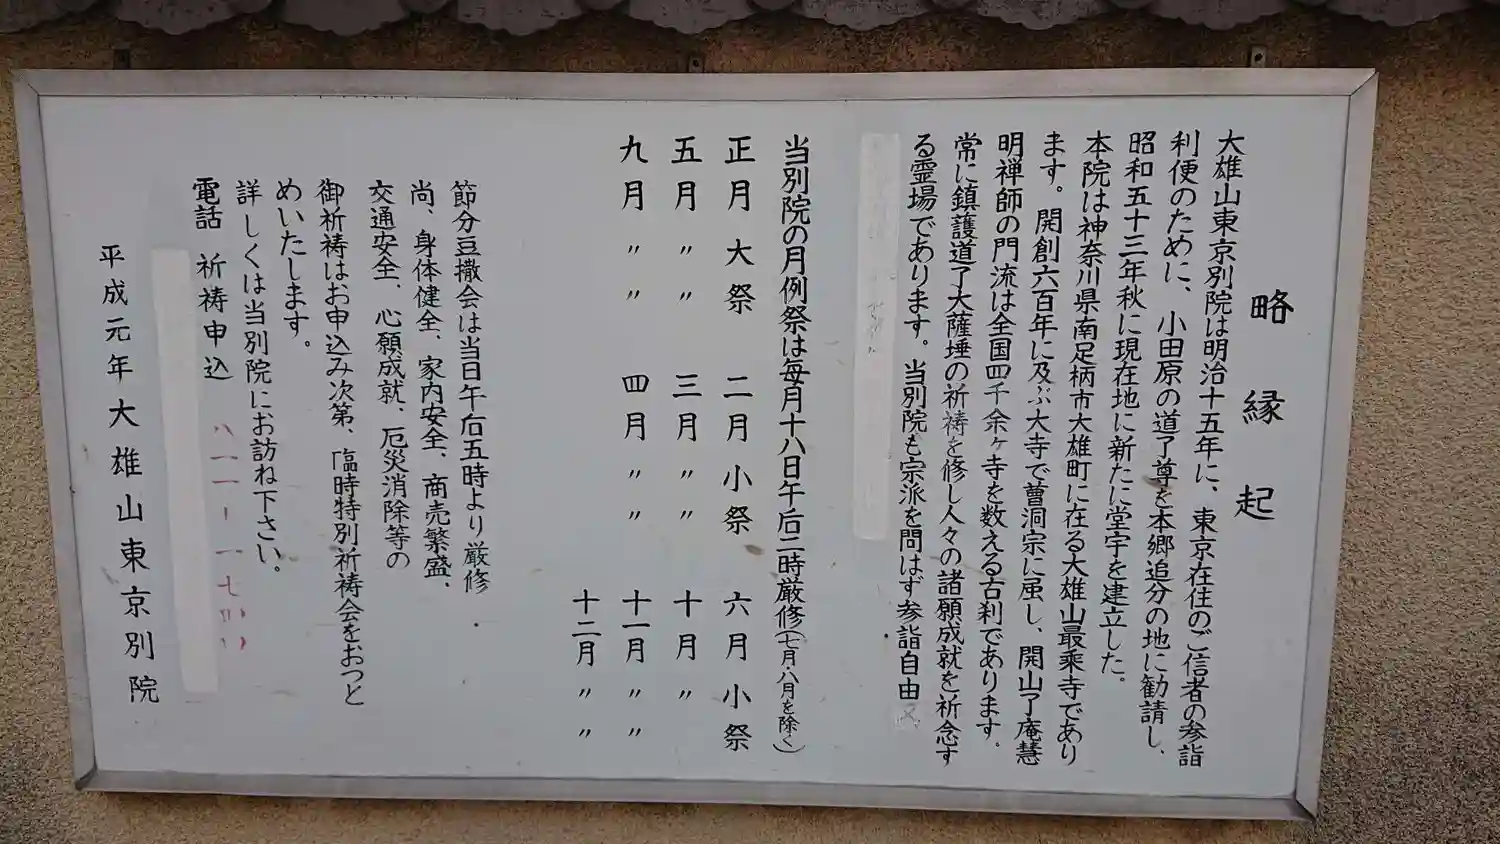 略縁起
大雄山東京別院は明治十五年に、東京在住のご信者の参詣
利便のために、小田原の道了尊を本郷追分の地に勧請し、
昭和五十三年秋に現在地に新たに堂宇を建立した。
本院は神奈川県南足柄市大雄町に在る大雄山最乗寺であり
ます。開創六百年に及ぶ大寺で曹洞宗に属し、開山了庵慧
明禅師の門流は全国四千余ヶ寺を数える古刹であります。
常に鎮護道了大薩埵の祈祷を修し人々の諸願成就を祈念す
る霊場であります。当別院も宗派を問はず参詣自由
当別院の月例祭は毎月十八日午后二時厳修(七月・八月を除く)
正月大祭 二月小祭 六月小祭
五月〃〃 三月〃〃 十月〃
九月〃〃 四月〃〃 十一月〃〃
十二月〃〃
節分豆撒会は当日午后五時より厳修
尚、身体健全、家内安全、商売繁盛、
交通安全、心願成就、厄災消除等の
御祈祷はお申込み次第、「臨時特別祈祷会をおつと
めいたします。
詳しくは当別院にお訪ね下さい。
電話 祈祷申込
平成元年大雄山東京別院